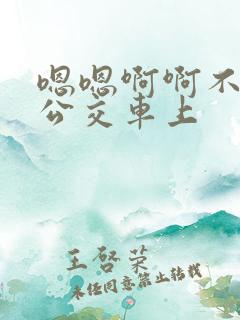 嗯嗯啊啊不
公交車上
王啓荣
未经同意禁止转载